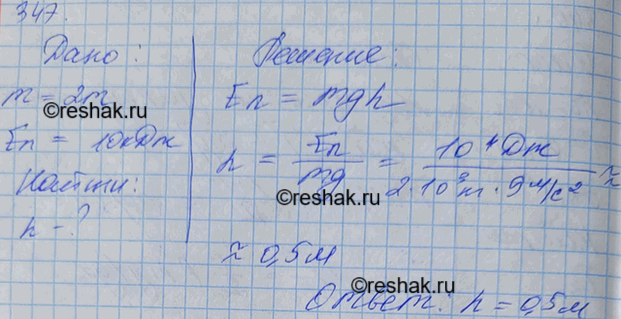 347.
Дано:
m = 2т
Eп = 10кДж
Найти:
h - ?
Решение:
Eп = mgh
h = Eп / mg = 10⁴ Дж / 2·10³ т · 9 м/с² ≈
≈ 0,5м
Ответ: h = 0,5м
©reshak.ru
©reshak.ru
©reshak.ru
©reshak.ru